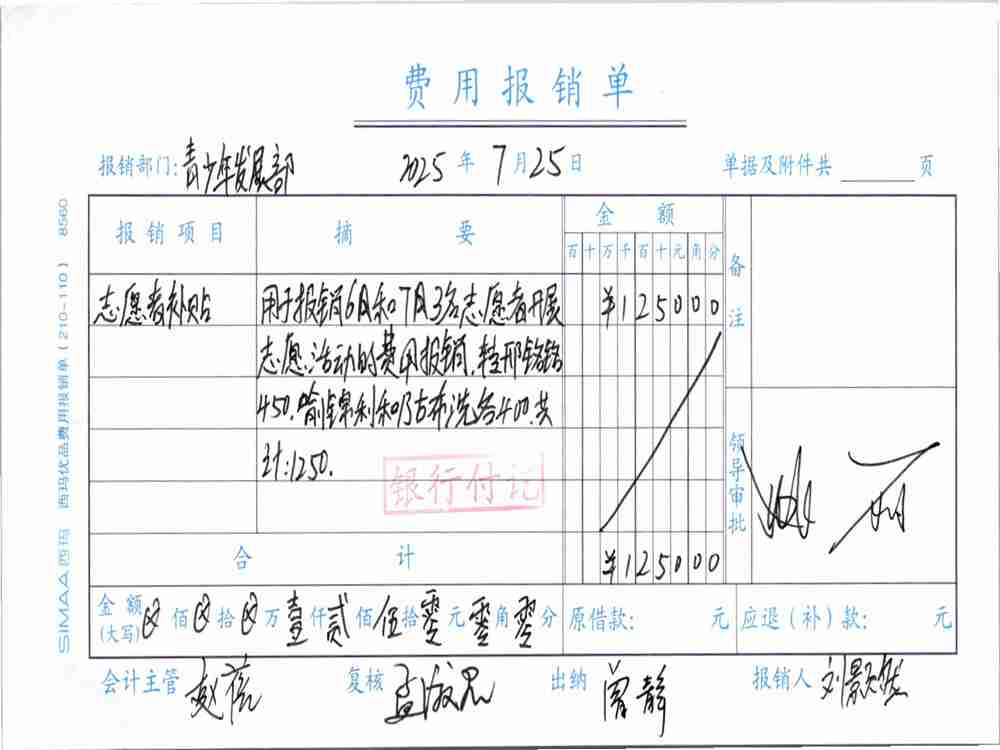 费用报销单
报销部门:青少年发展部 2025年7月25日 单据及附件共 页
报销项目 摘要 金额 备注
百十万千百十元角分
志愿者补贴 用于报销6月和7月3名志愿者开展 ¥125000
志愿活动的费用报销,
450.
400.共
计:1250.
银行付讫
领导审批
合计 ¥125000
金额(大写) 佰 拾 万壹仟贰佰伍拾零元零角零分 原借款: 元 应退(补)款: 元
会计主管 赵蓓 复核 孟淑思 出纳 曾静 报销人 刘景然
SIMAA西玛 西玛优品费用报销单(210-110) 8560